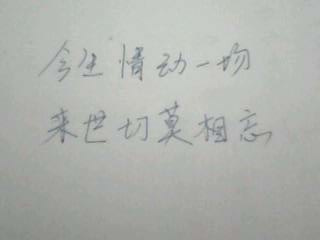 今生情动一场
来世切莫相忘